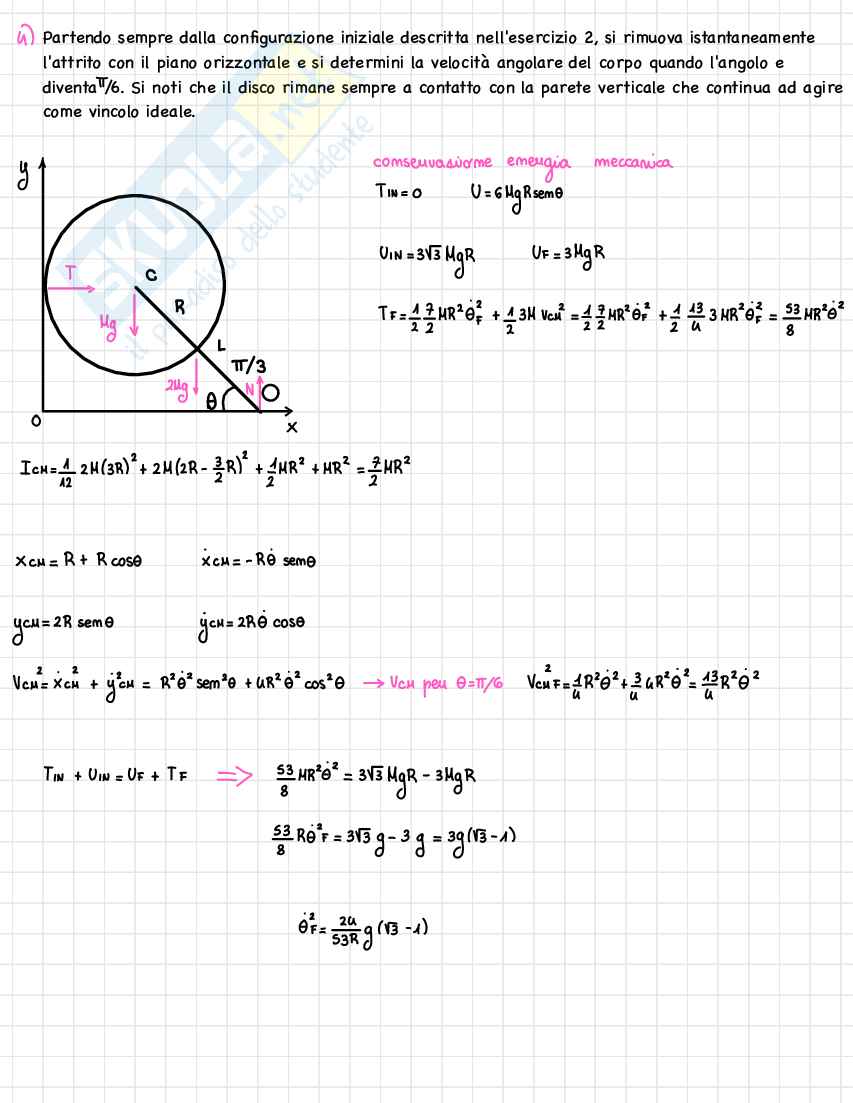 4) Partendo sempre dalla configurazione iniziale descritta nell'esercizio 2, si rimuova istantaneamente
l'attrito con il piano orizzontale e si determini la velocità angolare del corpo quando l'angolo e
diventa π/6. Si noti che il disco rimane sempre a contatto con la parete verticale che continua ad agire
come vincolo ideale.
SKUOLA.net
il paradiso dello studente
y
T
C
R
Mg
L
π/3
2Mg
θ
N
O
0
x
conservazione energia meccanica
T_IN = 0 U = 6MgR senθ
U_IN = 3√3 MgR U_F = 3MgR
T_F = 1/2 7/2 MR² θ̇_F² + 1/2 3M V_CM² = 1/2 7/2 MR² θ̇_F² + 1/2 13/4 3MR² θ̇_F² = 53/8 MR² θ̇²
I_CM = 1/12 2M(3R)² + 2M(2R - 3/2 R)² + 1/2 MR² + MR² = 7/2 MR²
x_CM = R + R cosθ ẋ_CM = -Rθ̇ senθ
y_CM = 2R senθ ẏ_CM = 2Rθ̇ cosθ
V_CM² = ẋ_CM² + ẏ²_CM = R²θ̇² sen²θ + 4R²θ̇² cos²θ → V_CM per θ=π/6 V_CM F² = 1/4 R²θ̇² + 3/4 4R²θ̇² = 13/4 R²θ̇²
T_IN + U_IN = U_F + T_F ⇒ 53/8 MR²θ̇² = 3√3 MgR - 3MgR
53/8 Rθ̇²_F = 3√3 g - 3 g = 3g(√3 - 1)
θ̇²_F = 24/53R g(√3 - 1)